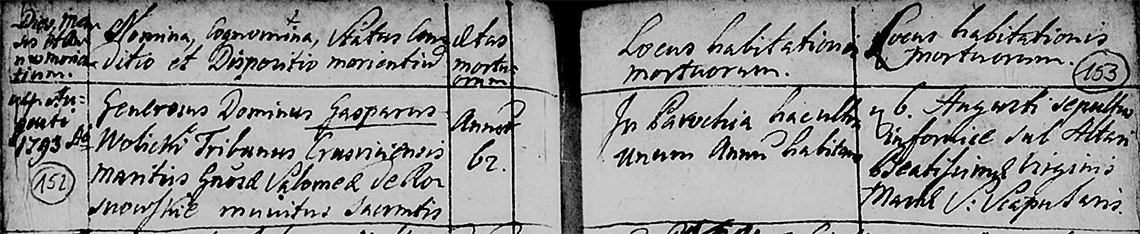 Dies, Men-
sis et An-
nus morien-
tium.
Nomina, Cognomina, Status Con-
ditio et Dispositio morientiũ
Ætas
mortu-
orum
Locus habitationis
mortuorum.
Locus habitationis
mortuorum.
153
4ta Au-
gusti
1793
152
Generosus Dominus Gasparus
Wolicki Tribunus Crusviciensis
Maritus Gnosæ Salomeæ de
munitus Sacrmtis
Annor̃
62.
In Parochia hac ultra
unum Annũ habitans
6. Augusti sepultus
in fornice sub Altari
Beatissimæ Virginis
Mariæ S: Scapularis.